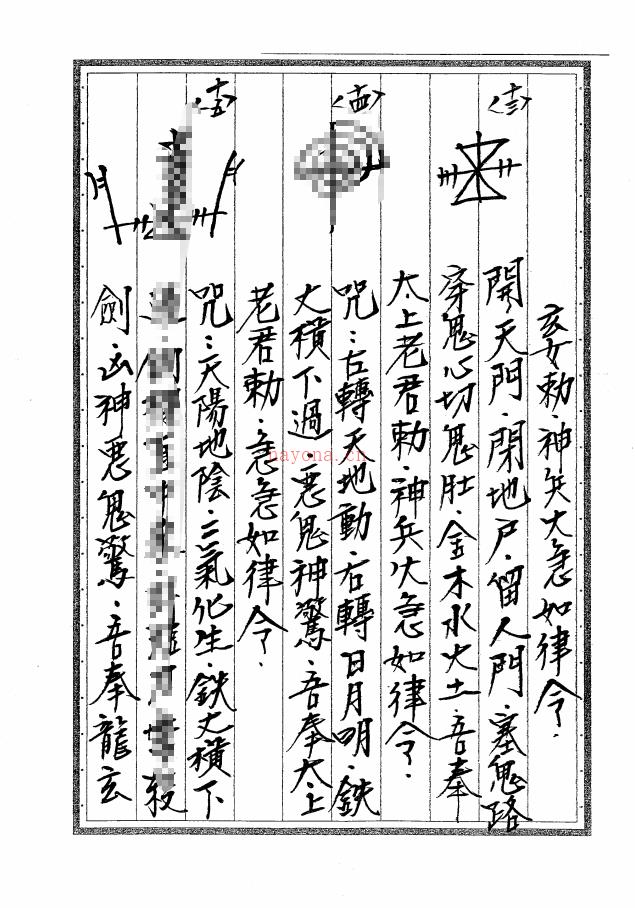 玄女勅·神兵火急如律令·
〈十三〉
開天門·閉地戶·留人門·塞鬼路
穿鬼心切鬼肚·金木水火土·吾奉
太上老君勅·神兵火急如律令·
〈十四〉
咒:左轉天地動·右轉日月明·鉄
丈橫下過·惡鬼神驚·吾奉太上
老君勅·急急如律令·
〈十五〉
咒:天陽地陰·三氣化生·鉄丈橫下
殺
劍·凶神惡鬼驚·吾奉龍玄
nayona.cn